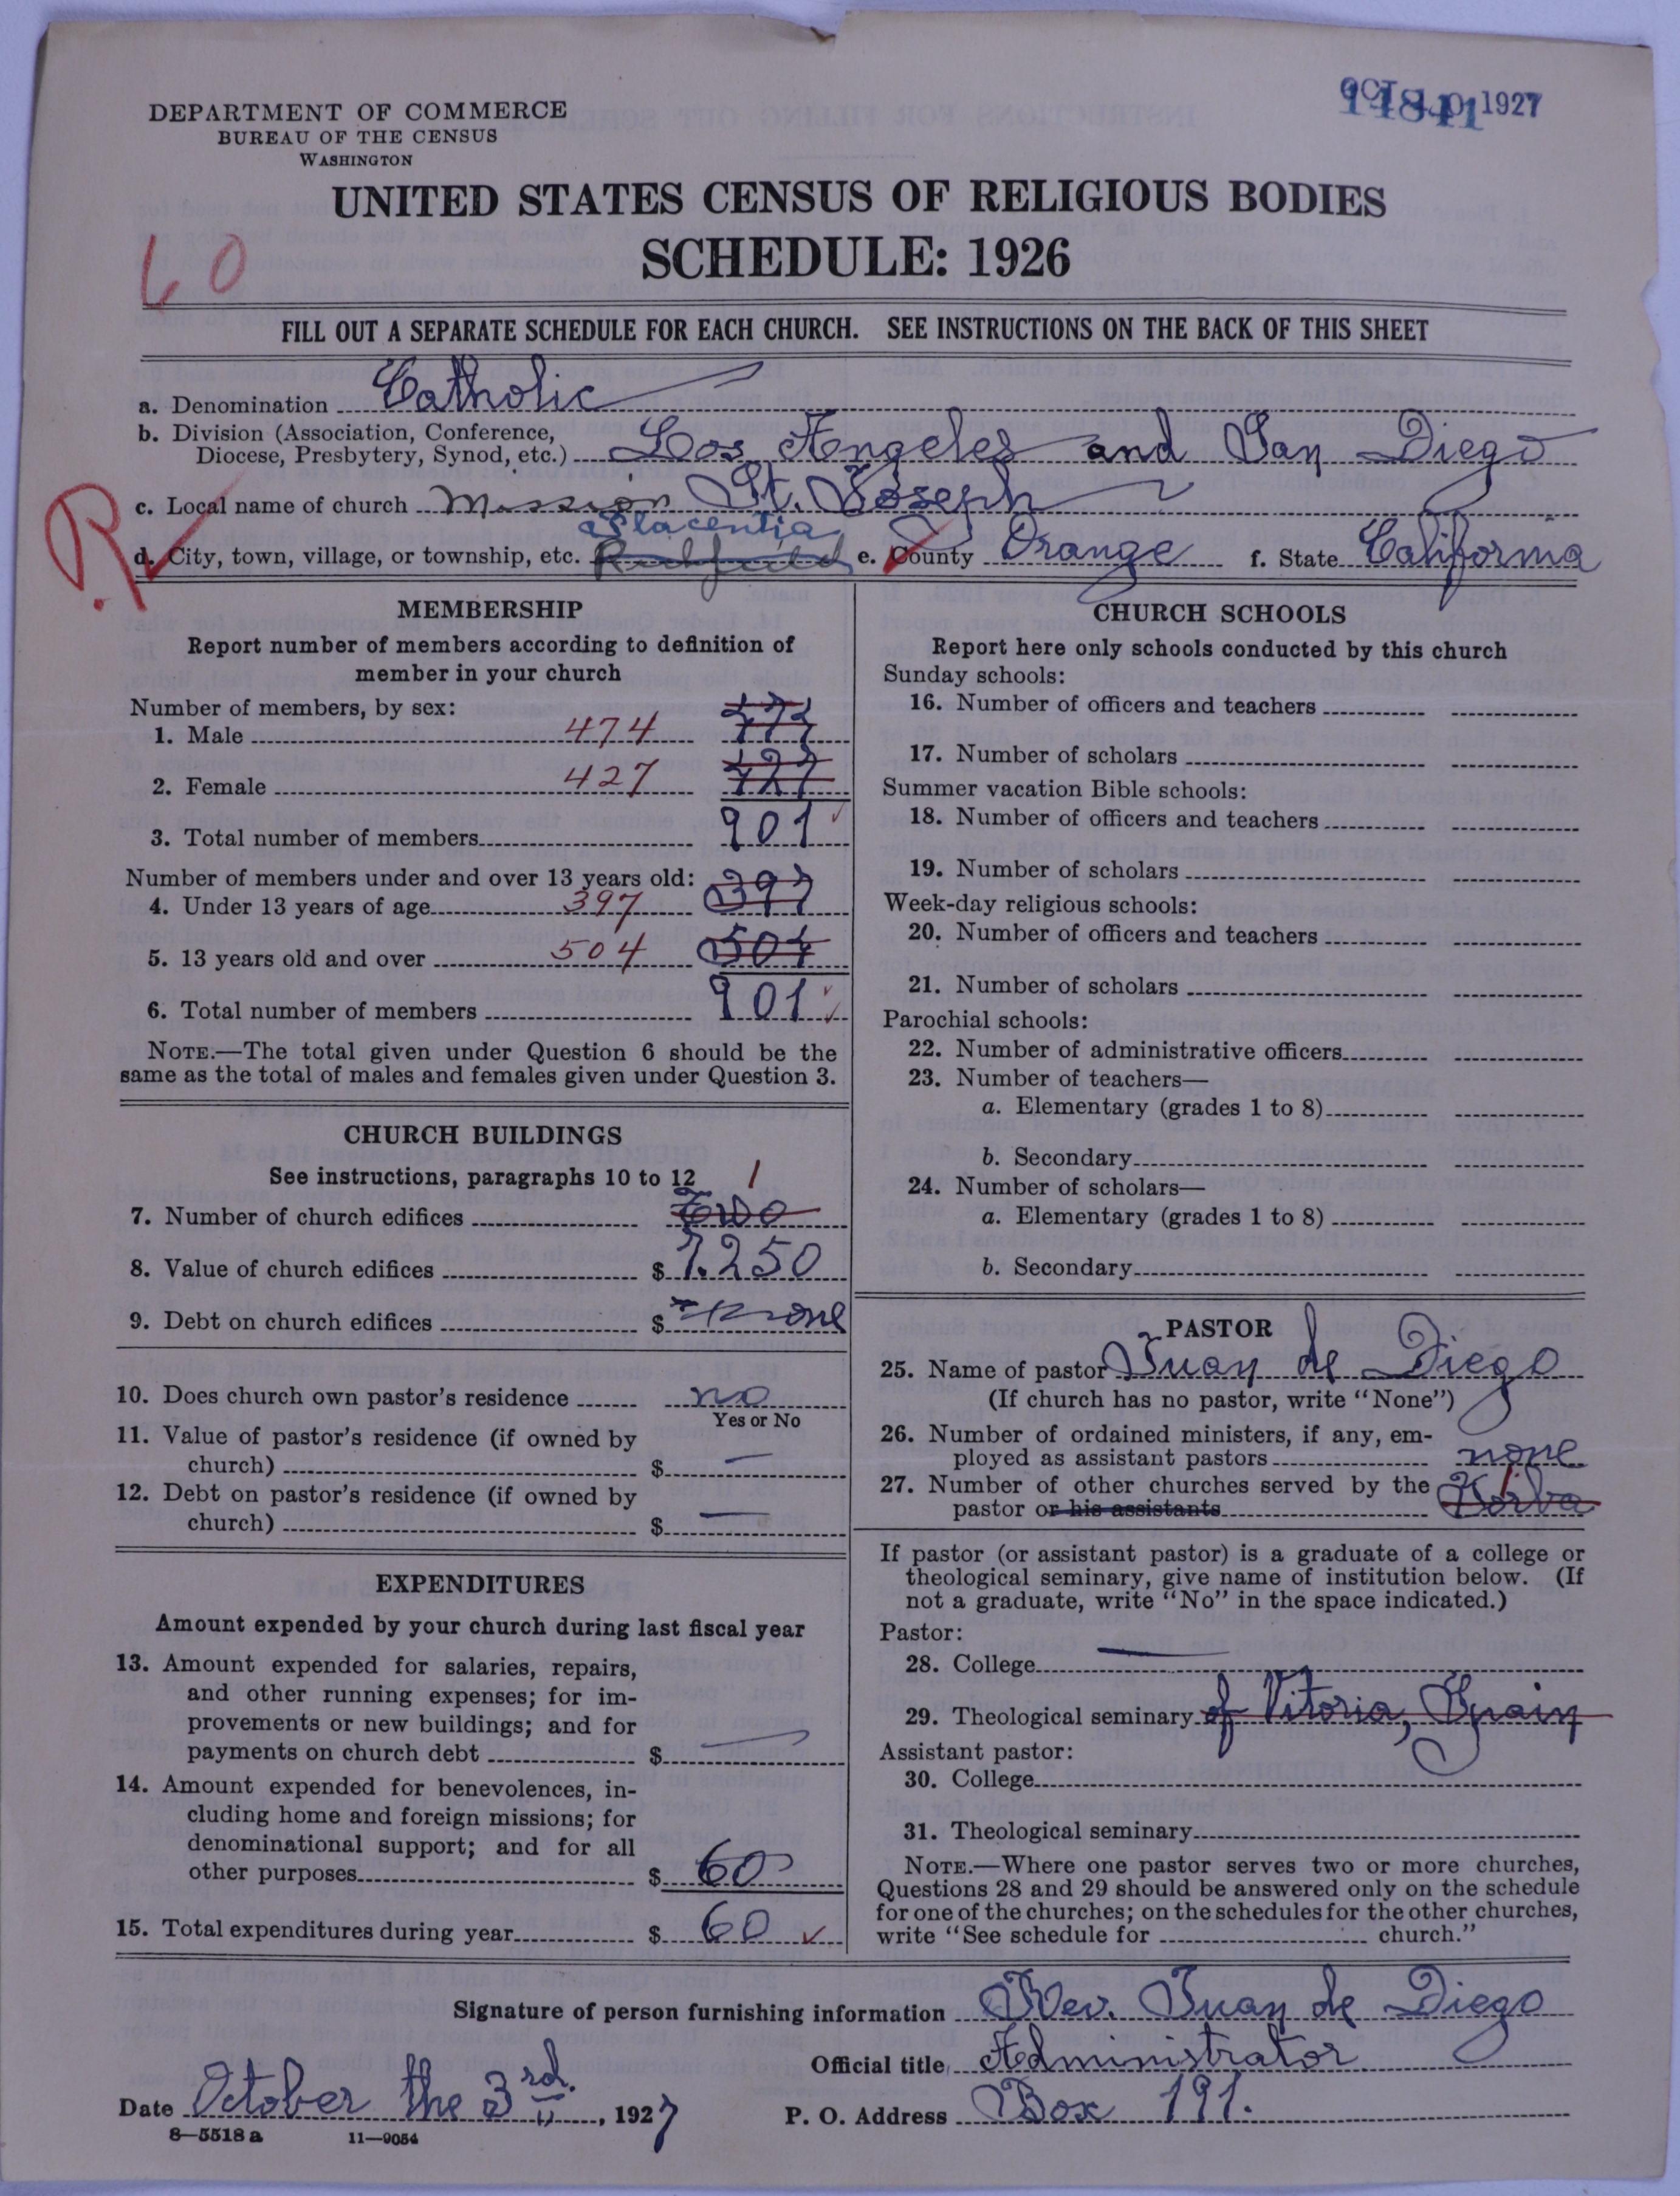 DEPARTMENT OF COMMERCE
BUREAU OF THE CENSUS
WASHINGTON
1927
UNITED STATES CENSUS OF RELIGIOUS BODIES
SCHEDULE: 1926
60
FILL OUT A SEPARATE SCHEDULE FOR EACH CHURCH. SEE INSTRUCTIONS ON THE BACK OF THIS SHEET
a. Denomination Catholic
b. Division (Association, Conference,
Diocese, Presbytery, Synod, etc.) Los Angeles and San Diego
c. Local name of church Mission St. Joseph
R.
Placentia
d. City, town, village, or township, etc. Richfield e. County Orange f. State California
MEMBERSHIP
Report number of members according to definition of
member in your church
Number of members, by sex:
1. Male 474
2. Female 427 427
3. Total number of members 901
Number of members under and over 13 years old:
4. Under 13 years of age 397 397
5. 13 years old and over 504 504
6. Total number of members 901
NOTE.—The total given under Question 6 should be the
same as the total of males and females given under Question 3.
CHURCH BUILDINGS
See instructions, paragraphs 10 to 12
1
7. Number of church edifices Two
8. Value of church edifices $ 7.250
9. Debt on church edifices $ none
10. Does church own pastor's residence no
Yes or No
11. Value of pastor's residence (if owned by
church) $ —
12. Debt on pastor's residence (if owned by
church) $ —
EXPENDITURES
Amount expended by your church during last fiscal year
13. Amount expended for salaries, repairs,
and other running expenses; for im-
provements or new buildings; and for
payments on church debt $ —
14. Amount expended for benevolences, in-
cluding home and foreign missions; for
denominational support; and for all
other purposes $ 60
15. Total expenditures during year $ 60
CHURCH SCHOOLS
Report here only schools conducted by this church
Sunday schools:
16. Number of officers and teachers
17. Number of scholars
Summer vacation Bible schools:
18. Number of officers and teachers
19. Number of scholars
Week-day religious schools:
20. Number of officers and teachers
21. Number of scholars
Parochial schools:
22. Number of administrative officers
23. Number of teachers—
a. Elementary (grades 1 to 8)
b. Secondary
24. Number of scholars—
a. Elementary (grades 1 to 8)
b. Secondary
PASTOR
25. Name of pastor Juan de Diego
(If church has no pastor, write "None")
26. Number of ordained ministers, if any, em-
ployed as assistant pastors none
27. Number of other churches served by the
pastor or his assistants 1
If pastor (or assistant pastor) is a graduate of a college or
theological seminary, give name of institution below. (If
not a graduate, write "No" in the space indicated.)
Pastor:
28. College —
29. Theological seminary of Vitoria, Spain
Assistant pastor:
30. College
31. Theological seminary
NOTE.—Where one pastor serves two or more churches,
Questions 28 and 29 should be answered only on the schedule
for one of the churches; on the schedules for the other churches,
write "See schedule for church."
Signature of person furnishing information Rev. Juan de Diego
Official title Administrator
Date October the 3rd, 1927 P. O. Address Box 191.
8—5518 a 11—9054